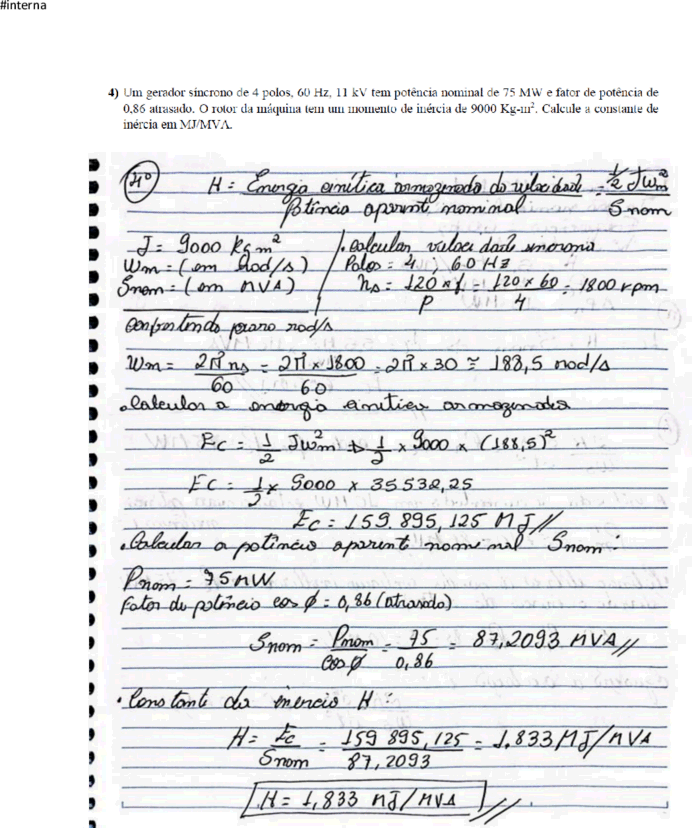 #interna
4) Um gerador síncrono de 4 polos, 60 Hz, 11 kV tem potência nominal de 75 MW e fator de potência de
0,86 atrasado. O rotor da máquina tem um momento de inércia de 9000 Kg-m². Calcule a constante de
inércia em MJ/MVA.
4º
H = Energia cinética armazenada da velocidade = ½ Jωm²
Potência aparent nominal Snom
J = 9000 kgm² . calcular velocidade sincrona
Wm = (em Rad/s) Polos = 4 ; 60 Hz
Snom = (em MVA) ns = 120 x f = 120 x 60 = 1800 rpm
p 4
para rad/s
Wm = 2π ns = 2π x 1800 = 2π x 30 ≅ 188,5 rad/s
60 60
. Calcular a energia cinética armazenada
Ec = 1/2 Jωm² → 1/2 x 9000 x (188,5)²
Ec = 1/2 x 9000 x 35532,25
Ec = 159.895,125 MJ //
. Calcular a potência aparent nominal Snom :
Pnom = 75 MW
Fator de potência cos φ = 0,86 (atrasado)
Snom = Pnom = 75 = 87,2093 MVA //
cos φ 0,86
. Constante de inercia H :
H = Ec = 159 895,125 = 1.833 MJ/MVA
Snom 87,2093
H = 1,833 MJ/MVA //